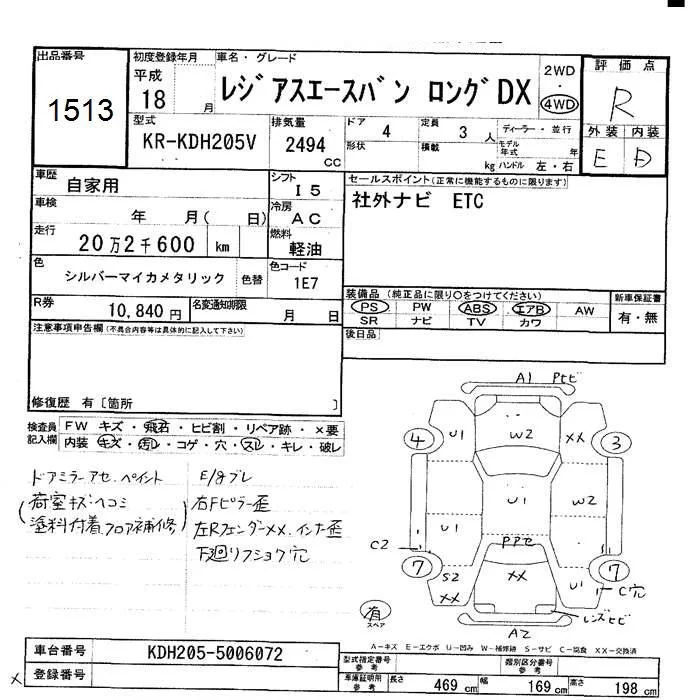 出品番号
1513
初度登録年月
平成
18 月
車名・グレード
レジアスエースバン ロングDX
2WD
4WD
評価点
R
外装 内装
E D
型式
KR-KDH205V
排気量
2494
CC
ドア
4
形状
定員
3 人
積載
kg
ディーラー・並行
モデル年式 年
ハンドル 左・右
車歴
自家用
シフト
I 5
車検
年 月( 日)
冷房
AC
走行
20万2千600 km
燃料
軽油
色
シルバーマイカメタリック
色替
色コード
1E7
R券
10,840 円
名変通知期限
月 日
セールスポイント(正常に機能するものに限ります)
社外ナビ ETC
装備品 (純正品に限り○をつけてください)
PS PW ABS エアB AW
SR ナビ TV カワ
新車保証書
有・無
後日品
注意事項申告欄(不具合内容等は具体的に記入して下さい)
修復歴 有〔箇所 〕
検査員
記入欄
FW キズ・飛石・ヒビ割・リペア跡・×要
内装 キズ・汚レ・コゲ・穴・スレ・キレ・破レ
ドアミラーアセ、ペイント
(荷室キズ・ヘコミ
塗料付着、フロア補修)
E/gブレ
右Fピラー歪
左Rフェンダーメメ、インナー歪
下廻リフショク穴
A1 Pヒビ
4 U1 W2 XX 3
U1 W2
U1
C2
PPセ
7 S2
XX
XX
U1 7
C穴
レンズヒビ
A2
有
スペア
A-キズ E-エクボ U-凹み W-補修跡 S-サビ C-腐食 XX-交換済
車台番号
KDH205-5006072
X 登録番号
型式指定番号
参考
類別区分番号
参考
車庫証明用
参考
長さ 469 cm 幅 169 cm 高さ 198 cm